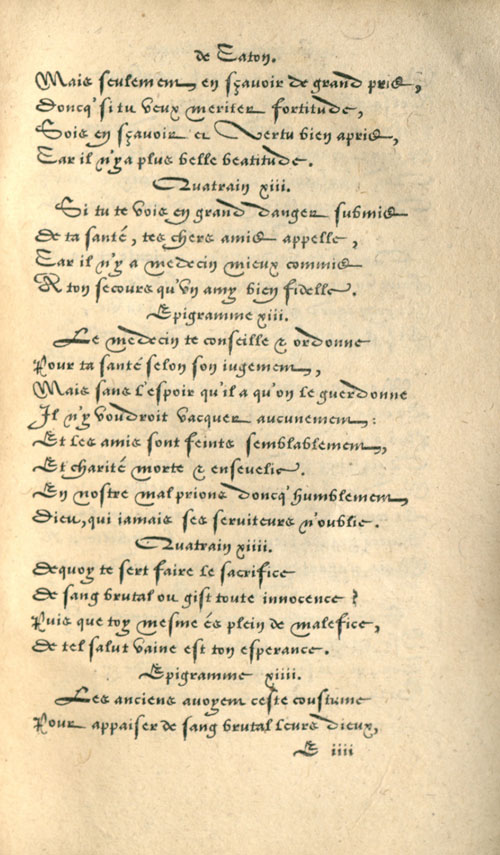 de Caton.
Mais seulement en sçavoir de grand pris,
Doncq' si tu veux meriter fortitude,
Sois en sçavoir et Vertu bien apris,
Car il n'y a plus belle beatitude.
Quatrain xiii.
Si tu te vois en grand danger submis
De ta santé, tes chers amis appelle,
Car il n'y a medecin mieux commis
A ton secours qu'vn amy bien fidelle.
Epigramme xiii.
Le medecin te conseille & ordonne
Pour ta santé selon son iugement,
Mais sans l'espoir qu'il a qu'on le guerdonne
Il n'y voudroit vacquer aucunement:
Et les amis sont feints semblablement,
Et charité morte & ensevelie.
En nostre mal prions doncq' humblement
Dieu, qui iamais ses serviteurs n'oublie.
Quatrain xiiii.
Dequoy te sert faire le sacrifice
De sang brutal ou gist toute innocence?
Puis que toy mesme és plein de malefice,
De tel salut vaine est ton esperance.
Epigramme xiiii.
Les anciens avoyent ceste coustume
Pour appaiser de sang brutal leurs dieux,
E iiii